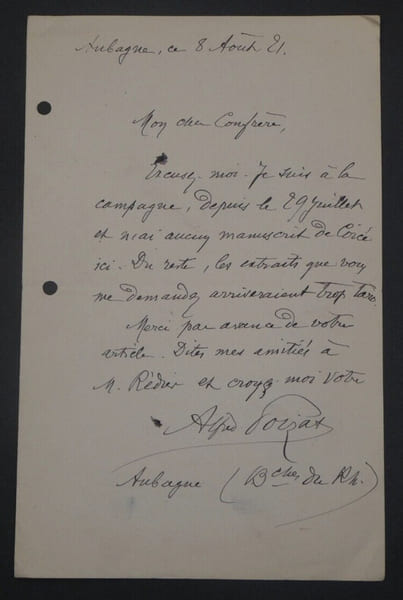 Aubagne, ce 8 Août 21.
Mon cher Confrère,
Excusez-moi. Je suis à la
campagne, depuis le 29 juillet
et n'ai aucun manuscrit de Circé
ici. Du reste, les extraits que vous
me demandez arriveraient trop tard.
Merci par avance de votre
article. Dites mes amitiés à
M. Rédier et croyez-moi votre
Alfred Poizat
Aubagne (Bches du Rh.)